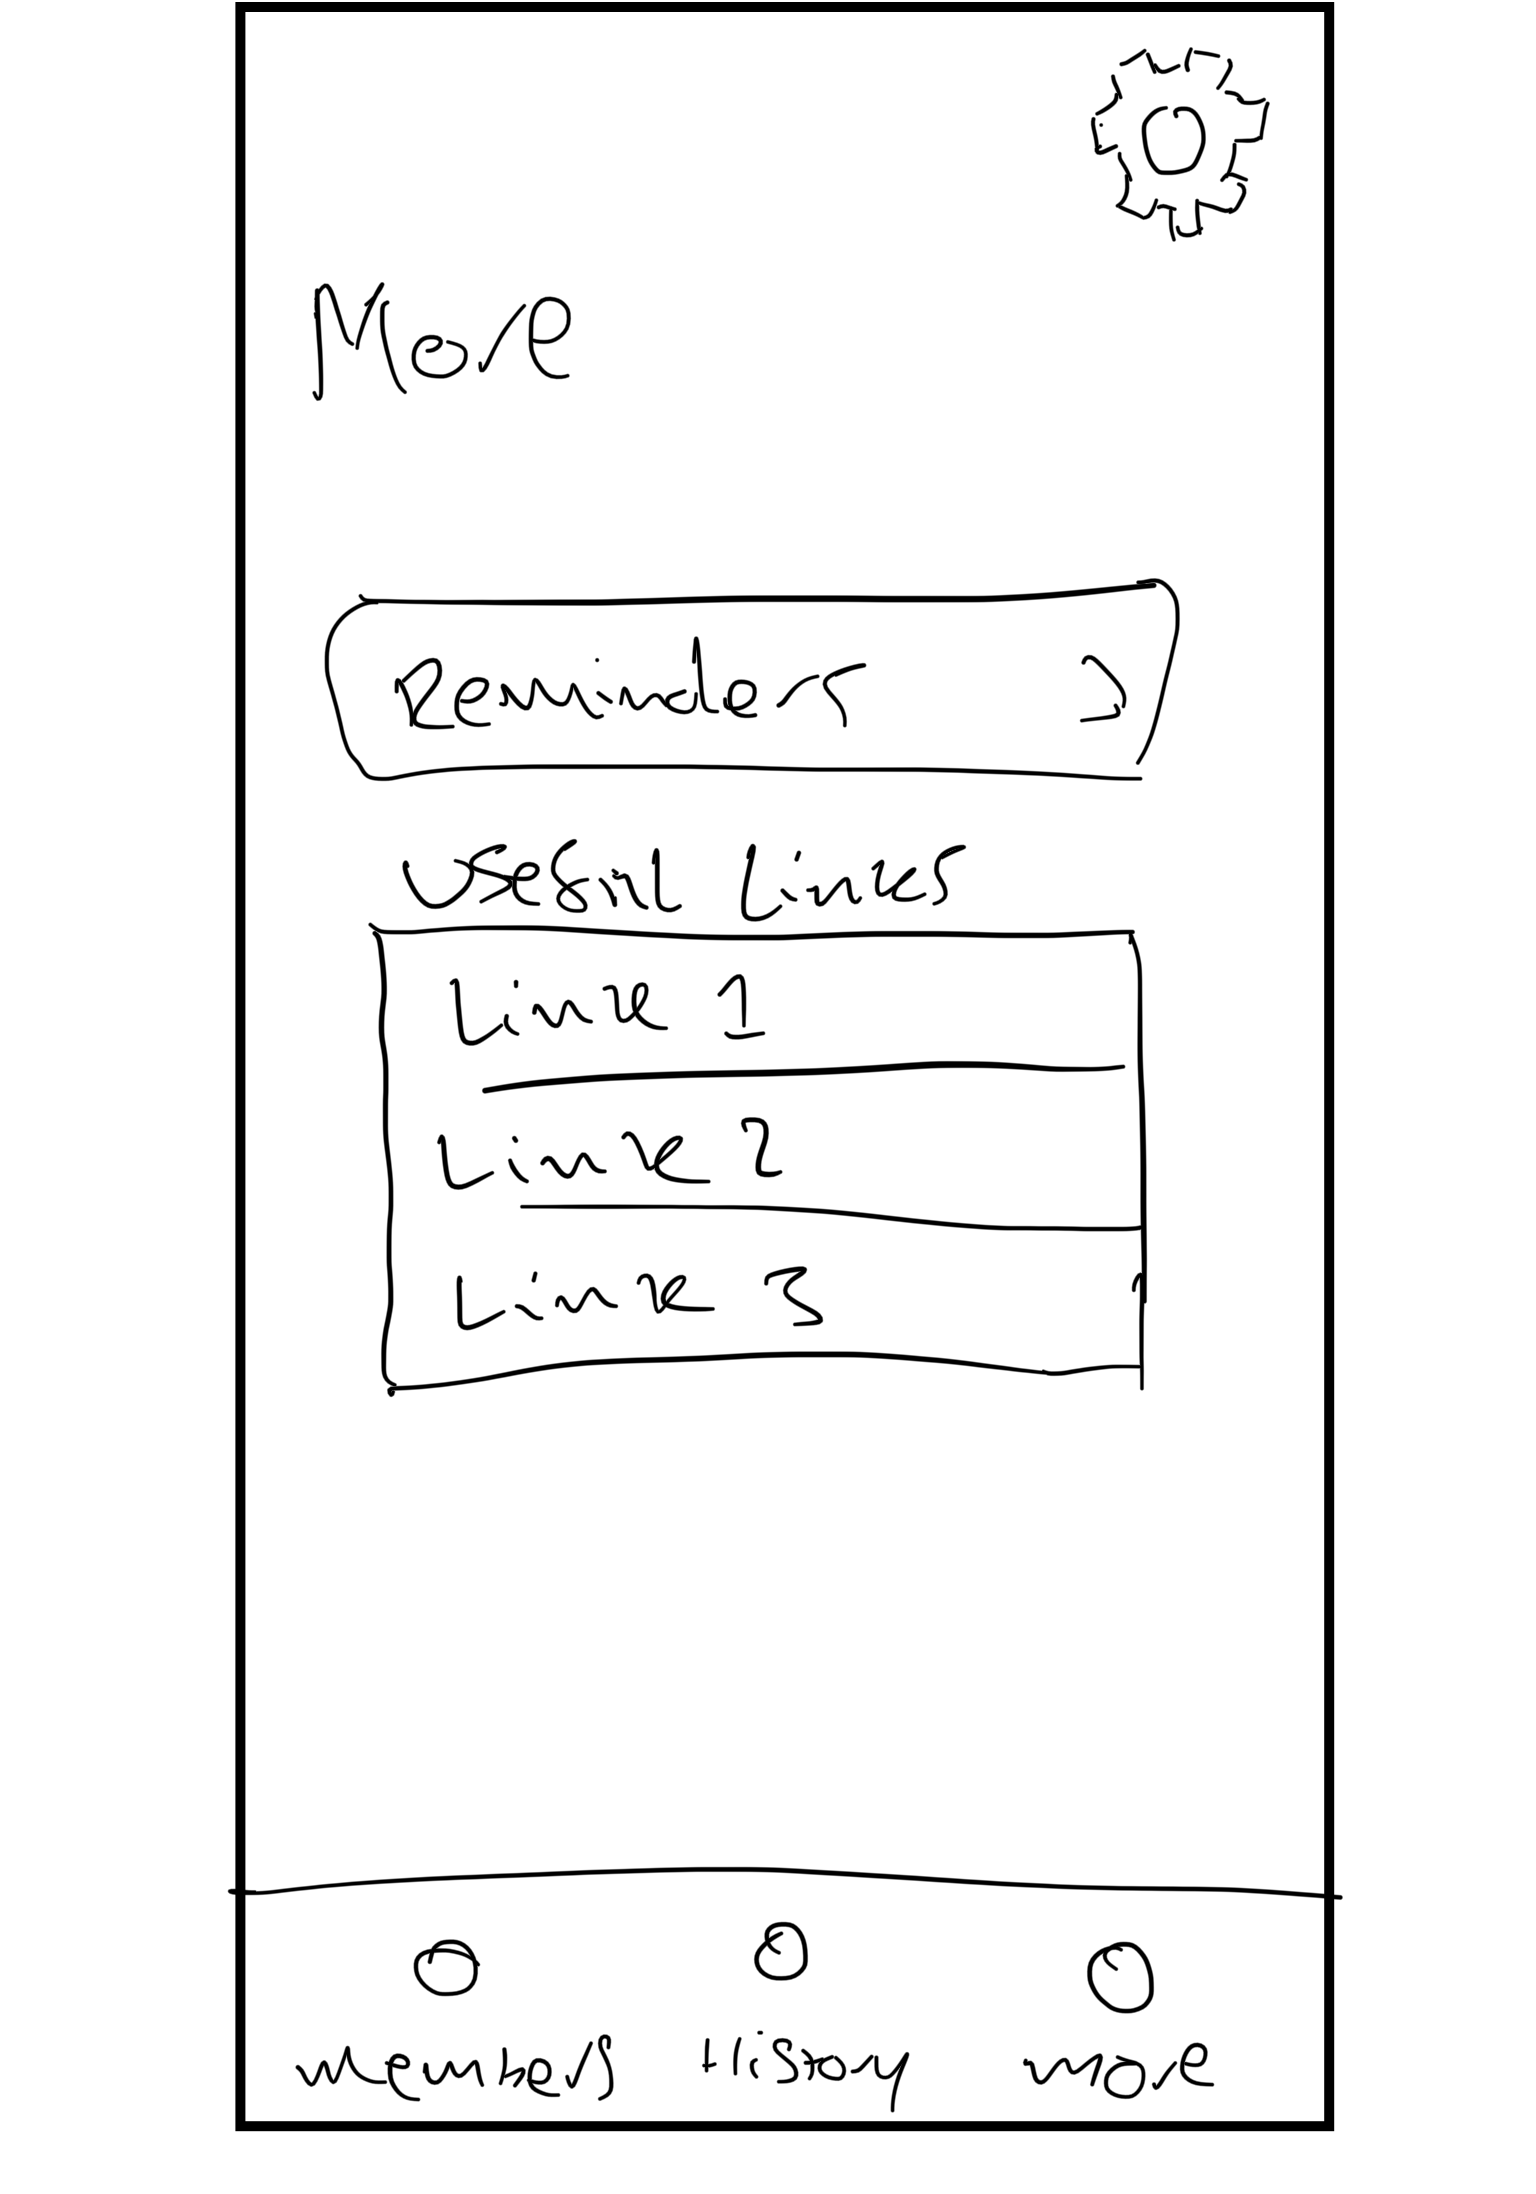 More
Reminders
Useful Links
Link 1
Link 2
Link 3
Members History More